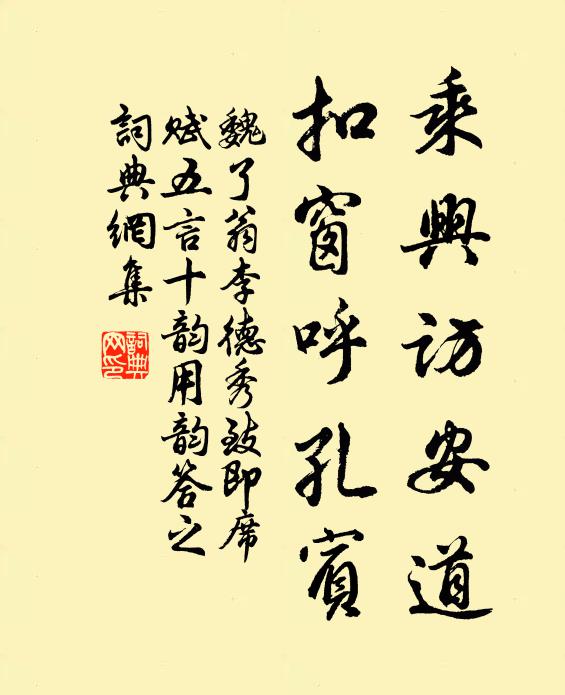 乘興訪安道
扣窗呼孔賓
魏了翁李德秀致即席
賦五言十韵用韵答之
詞典網集
詞典
网印